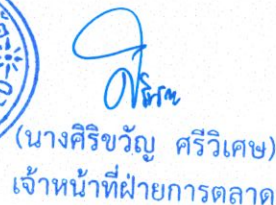 (นางศิริขวัญ ศรีวิเศษ)
เจ้าหน้าที่ฝ่ายการตลาด